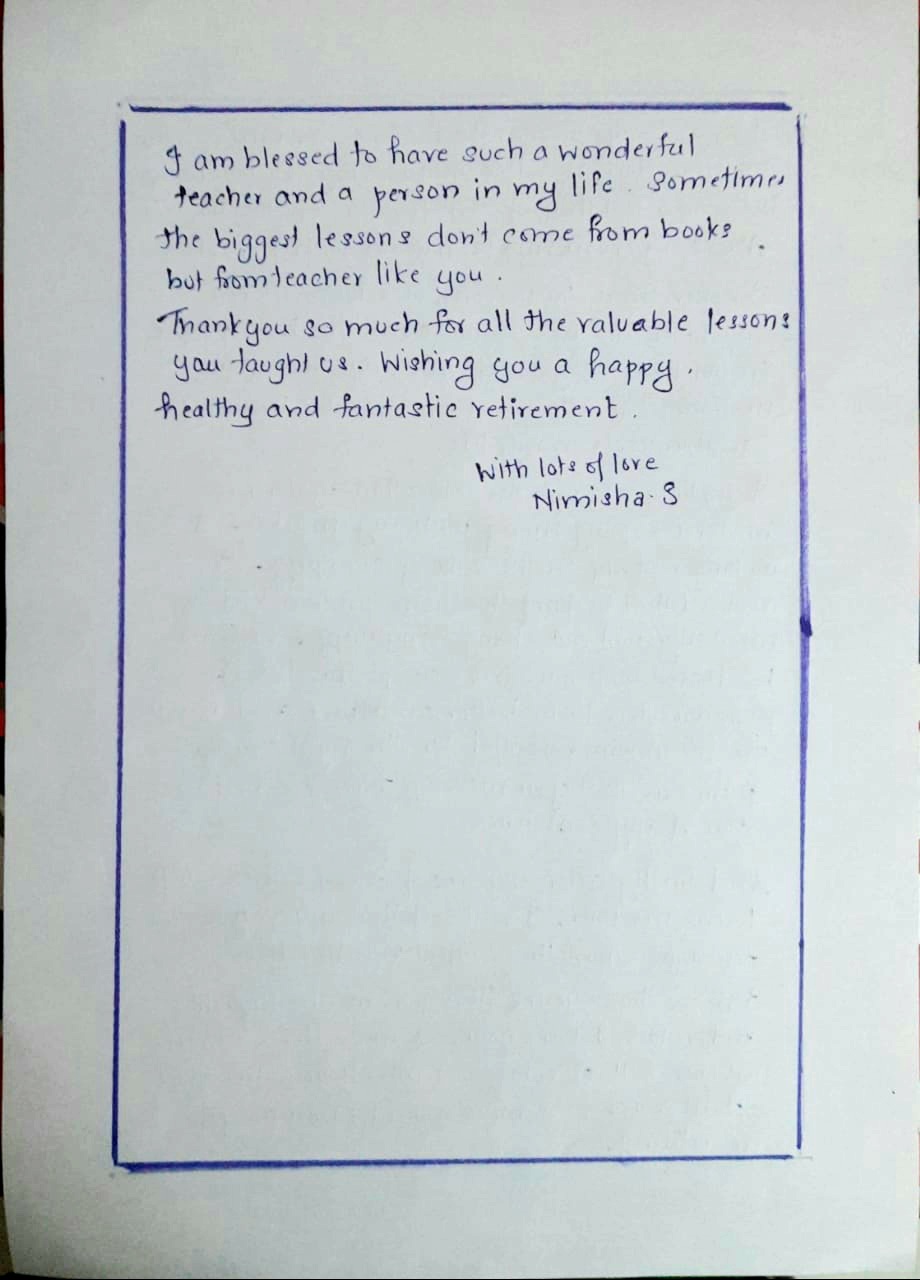 I am blessed to have such a wonderful
teacher and a person in my life. Sometimes
the biggest lessons don't come from books.
but from teacher like you.
Thank you so much for all the valuable lessons
you taught us. Wishing you a happy.
healthy and fantastic retirement.
With lots of love
Nimisha. S